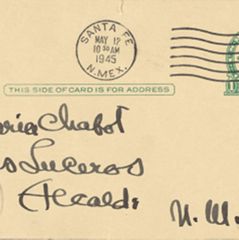 SANTA FE
MAY 12
10 30 AM
1945
N. MEX.
THIS SIDE OF CARD IS FOR ADDRESS
aria Chabot
os Luceros
Alcalde
N. M.